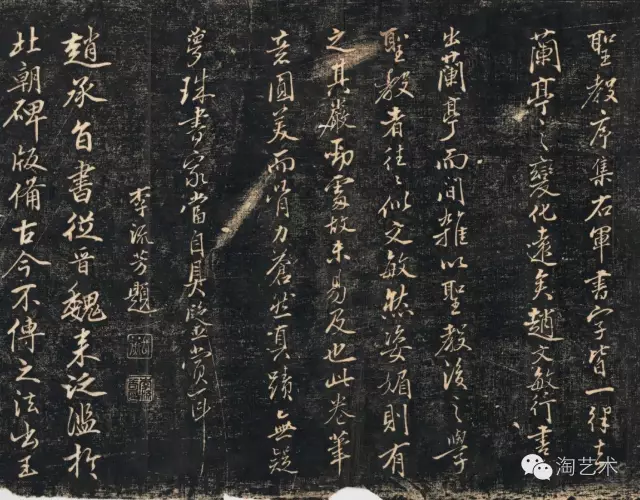 聖教序集右軍書字皆一得七
蘭亭之變化遠矣趙文敏行書
出蘭亭而間雜以聖教後之學
聖教者往〻似文敏然姿媚則有
之其嚴勁處故未易及也此卷筆
意圓美而骨力蒼然真蹟無疑
夢珠書家當自具鑒賞耳
李流芳題
趙承旨書從晉魏來泛濫於
北朝碑版備古今不傳之法出王
淘艺术